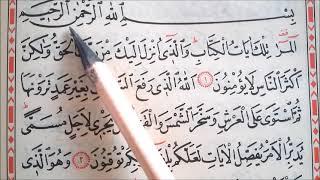 بِسْمِ اللّٰهِ الرَّحْمٰنِ الرَّحِيْمِ
الٓمّٓرٰ تِلْكَ اٰيَاتُ الْكِتَابِ وَالَّذِيْٓ اُنْزِلَ اِلَيْكَ مِنْ الْحَقُّ وَلٰكِنَّ
اَكْثَرَ النَّاسِ لَا يُؤْمِنُوْنَ ١ اَللّٰهُ الَّذِيْ رَفَعَ بِغَيْرِ عَمَدٍ تَرَوْنَهَا
ثُمَّ اسْتَوٰى عَلَى الْعَرْشِ وَسَخَّرَ الشَّمْسَ وَالْقَمَرَ يَجْرِيْ لِاَجَلٍ مُسَمًّى
يُدَبِّرُ الْاَمْرَ يُفَصِّلُ الْاٰيَاتِ لَعَلَّكُمْ تُوْقِنُوْنَ ٢ وَهُوَ الَّذِيْ